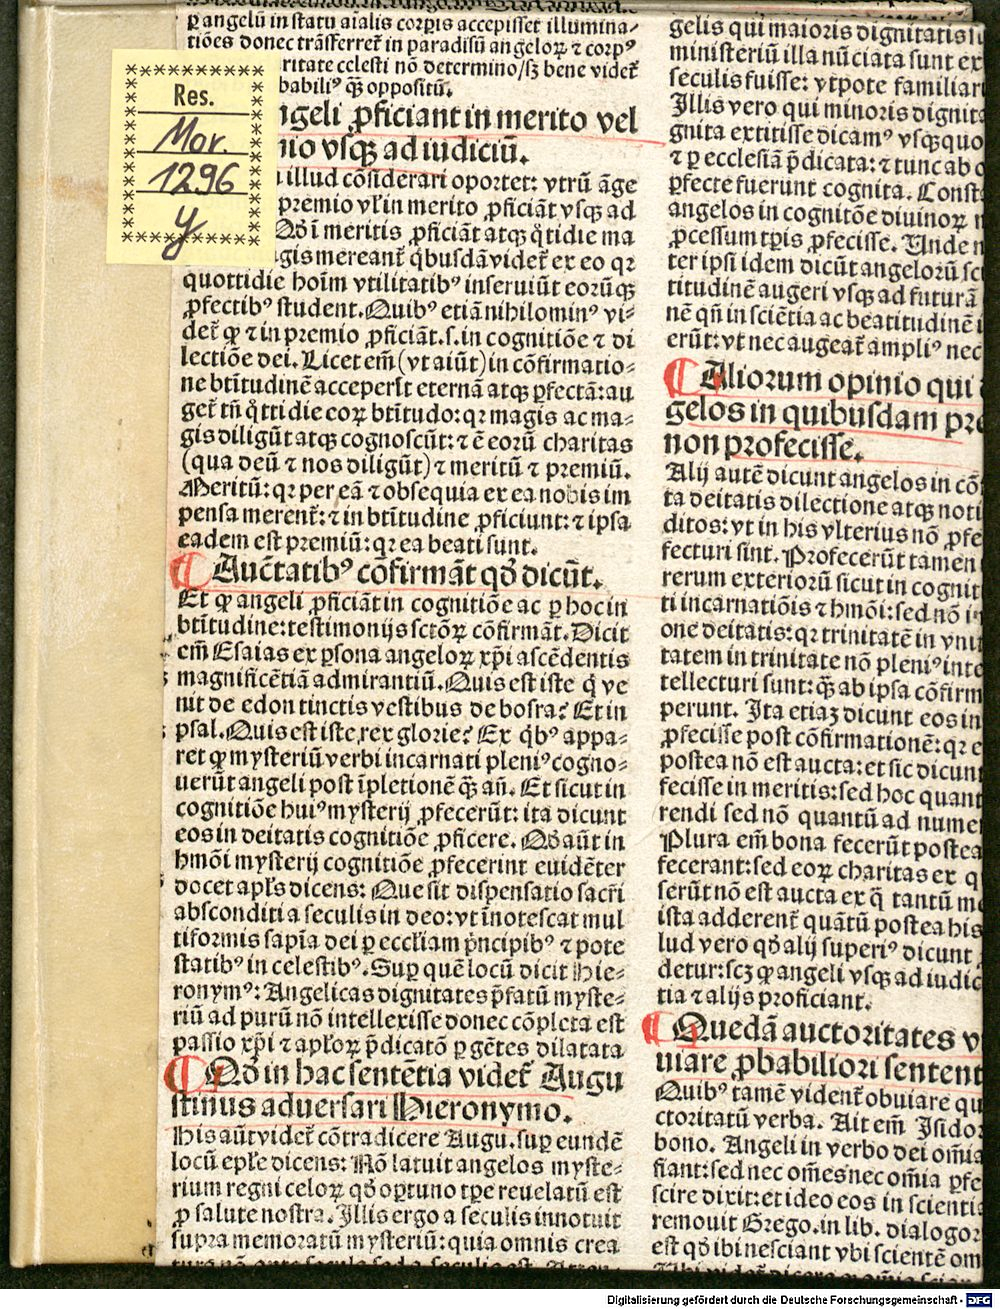 Res.
Mor.
1296
y
ꝑ angelū in statu aīalis corꝑis accepisset illumina⸗
tiões donec trāsferreť in paradisū angeloꝝ ⁊ corpꝰ
ritate celesti nō determino/sꝫ bene videť
babiliꝰ q̄ꝫ oppositū.
ngeli ꝓficiant in merito vel
mio vsqꝫ ad iudiciū.
illud cōsiderari oportet: vtrū āge
premio vł in merito ꝓficiāt vsqꝫ ad
Qď ī meritis ꝓficiāt atqꝫ q̊tidie ma
gis mereanť q̇busdā videť ex eo qꝛ
quottidie hoīm vtilitatibꝰ inseruiūt eorūqꝫ
ꝓfectibꝰ student. Quibꝰ etiā nihilominꝰ vi⸗
deť ꝙ ⁊ in premio ꝓficiāt. s. in cognitiōe ⁊ di
lectiōe dei. Licet em̄ (vt aiūt) in cōfirmatio⸗
ne btītudinē acceperīt eternā atqꝫ ꝑfectā: au
geť tn̄ q̊ttidie coꝝ btītudo: qꝛ magis ac ma⸗
gis diligūt atqꝫ cognoscūt: ⁊ ē eorū charitas
(qua deū ⁊ nos diligūt) ⁊ meritū ⁊ premiū.
Meritū: qꝛ per eā ⁊ obsequia ex ea nobis im
pensa merenť: ⁊ in btītudine ꝓficiunt: ⁊ ipsa
eadem est premiū: qꝛ ea beati sunt.
¶ Auc̄tatibꝰ cōfirmāt qď dicūt.
Et ꝙ angeli ꝓficiāt in cognitiōe ac ꝑ hoc in
btītudine: testimonijs sctōꝝ cōfirmāt. Dicit
em̄ Esaias ex ꝑsona angeloꝝ xp̄i ascēdentis
magnificētiā admirantiū. Quis est iste q̇ ve
nit de edon tinctis vestibus de bosra? Et in
psal. Quis est iste rex glorie? Ex q̇bꝰ appa⸗
ret ꝙ mysteriū verbi incarnati pleniꝰ cogno⸗
uerūt angeli post īpletionē q̄ꝫ an̄. Et sicut in
cognitiōe huiꝰ mysterij ꝓfecerūt: ita dicunt
eos in deitatis cognitiōe ꝓficere. Qď aūt in
hmōi mysterij cognitiōe ꝓfecerint euidēter
docet apłs dicens: Que sit dispensatio sacr̄i
absconditi a seculis in deo: vt īnotescat mul
tiformis sapīa dei ꝑ eccłiam p̄ncipibꝰ ⁊ pote
statibꝰ in celestibꝰ. Suꝑ quē locū dicit Hie⸗
ronymꝰ: Angelicas dignitates p̄fatū myste⸗
riū ad purū nō intellexisse donec cōpleta est
passio xp̄i ⁊ apłoꝝ p̄dicatō ꝑ gētes dilatata
¶ Qď in hac sentētia videť Augu
stinus aduersari Hieronymo.
His aūt videť cōtradicere Augu. suꝑ eundē
locū epłe dicens: Nō latuit angelos myste⸗
rium regni celoꝝ qď oꝑtuno tꝑe reuelatū est
ꝓ salute nostra. Illis ergo a seculis innotuit
supra memoratū mysteriū: quia omnis crea
gelis qui maioris dignitatis
ministeriū illa nūciata sunt ex
seculis fuisse: vtpote familiari
Illis vero qui minoris dignita
gnita extitisse dicamꝰ vsqꝫ quo
⁊ ꝑ ecclesiā p̄dicata: ⁊ tunc ab o
ꝑfecte fuerunt cognita. Const
angelos in cognitōe diuinoꝝ
ꝓcessum tꝑis ꝓfecisse. Unde
ter ipsi idem dicūt angelorū sci
titudinē augeri vsqꝫ ad futurā
nē qn̄ in sciētia ac beatitudinē
erūt: vt nec augeaťampliꝰ nec
¶ Aliorum opinio qui
gelos in quibusdam pro
non profecisse.
Alij autē dicunt angelos in cō
ta deitatis dilectione atqꝫ noti
ditos: vt in his vlterius nō ꝓfe
fecturi sint. Profecerūt tamen
rerum exteriorū sicut in cognit
ti incarnatiōis ⁊ hmōi: sed nō
one deitatis: qꝛ trinitatē in vni
tatem in trinitate nō pleniꝰ inte
tellecturi sunt: q̄ꝫ ab ipsa cōfirm
perunt. Ita etiaꝫ dicunt eos in
ꝓfecisse post cōfirmationē: qꝛ
postea nō est aucta: et sic dicunt
fecisse in meritis: sed hoc quant
rendi sed nō quantū ad nume
Plura em̄ bona fecerūt postea
fecerant: sed eoꝝ charitas ex q
serūt nō est aucta ex q̄ tantū me
ista adderenť quātū postea his
lud vero qď alij superiꝰ dicunt
detur: scꝫ ꝙ angeli vsqꝫ ad iudic
tia ⁊ alijs proficiant.
¶ Quedā auctoritates v
uiare ꝓbabiliori sentent
Quibꝰ tamē videnť obuiare qu
ctoritatū verba. Ait em̄ Isidor
bono. Angeli in verbo dei om̄ia
fiant: sed nec om̄es nec om̄ia ꝑfe
scire dixit: et ideo eos in scientia
remouit Grego. in lib. dialogor
est qď ibi nesciant vbi scientē om
Digitalisierung gefördert durch die Deutsche Forschungsgemeinschaft - DFG